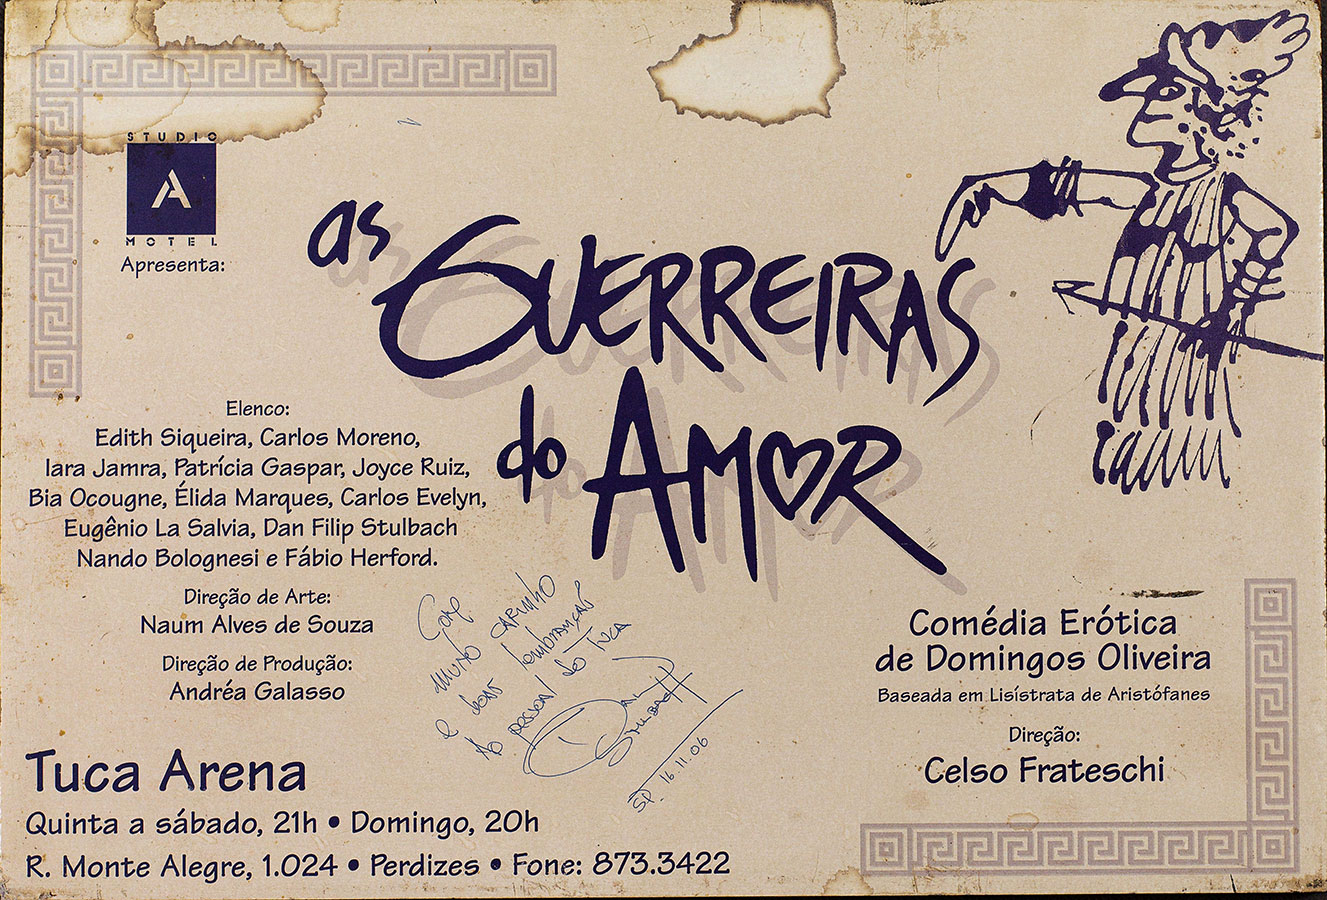 STUDIO
A
MOTEL
Apresenta:
as
GUERREIRAS
do AMOR
Elenco:
Edith Siqueira, Carlos Moreno,
Iara Jamra, Patrícia Gaspar, Joyce Ruiz,
Bia Ocougne, Élida Marques, Carlos Evelyn,
Eugênio La Salvia, Dan Filip Stulbach
Nando Bolognesi e Fábio Herford.
Direção de Arte:
Naum Alves de Souza
Direção de Produção:
Andréa Galasso
Com
muito carinho
e boas lembranças
Ao pessoal do TUCA
Dan
Stulbach
SP. 16.11.06
Comédia Erótica
de Domingos Oliveira
Baseada em Lisístrata de Aristófanes
Direção:
Celso Frateschi
Tuca Arena
Quinta a sábado, 21h • Domingo, 20h
R. Monte Alegre, 1.024 • Perdizes • Fone: 873.3422